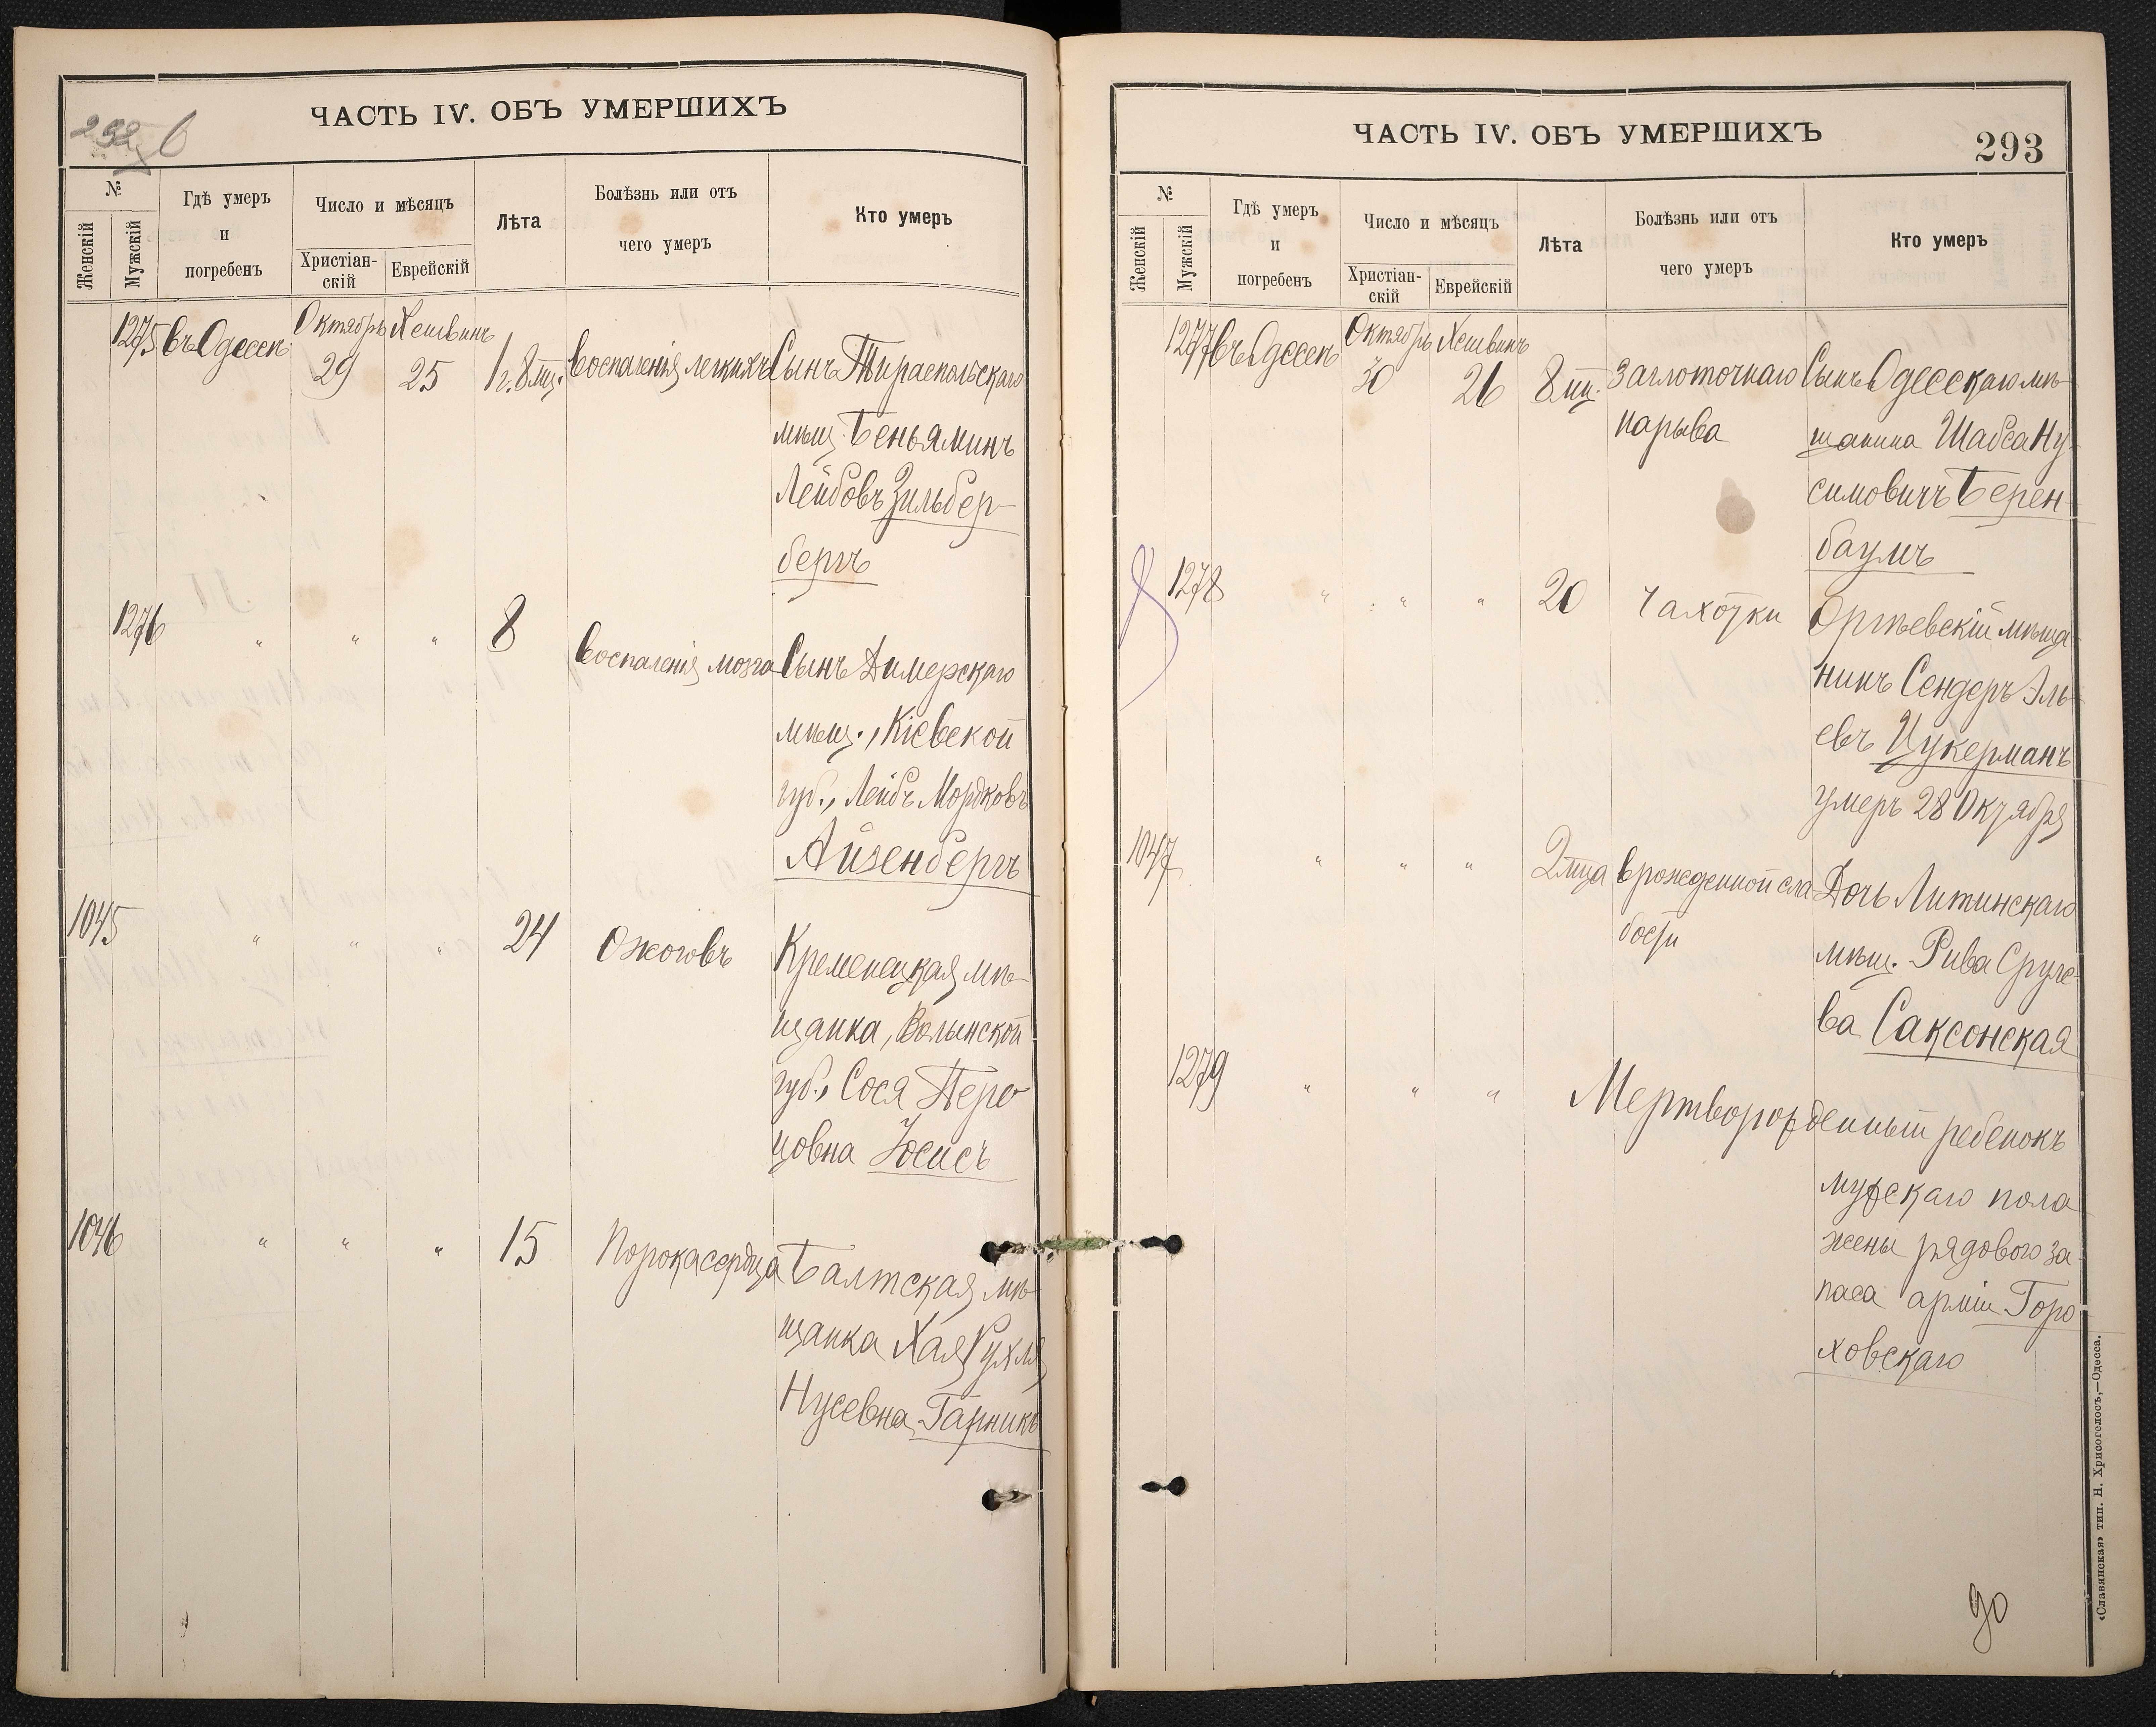 292 б
ЧАСТЬ IV. ОБЪ УМЕРШИХЪ
№
Женскій
Мужскій
Гдѣ умеръ
и
погребенъ
Число и мѣсяцъ
Христіан-
скій
Еврейскій
Лѣта
Болѣзнь или отъ
чего умеръ
Кто умеръ
1275 въ Одессѣ Октябрь 29 Хешвинъ 25 1 г. 8 мц. Воспаленія легкихъ Сынъ Тираспольскаго
мѣщ. Беньяминъ
Лейбовъ Зильбер-
бергъ
1276 " " " 8 Воспаленія мозга Сынъ Димерскаго
мѣщ., Кіевской
губ., Лейбъ Мордковъ
Айзенбергъ
1045 " " " 24 Ожоговъ Кременецкая мѣ-
щанка, Волынской
губ., Сося Перо
цовна Юсисъ
1046 " " " 15 Порока сердца Балтская мѣ-
щанка Хая Рухля
Нусевна Гарникъ
ЧАСТЬ IV. ОБЪ УМЕРШИХЪ
293
№
Женскій
Мужскій
Гдѣ умеръ
и
погребенъ
Число и мѣсяцъ
Христіан-
скій
Еврейскій
Лѣта
Болѣзнь или отъ
чего умеръ
Кто умеръ
1277 въ Одессѣ Октябрь 30 Хешвинъ 26 8 мц. Заглоточнаго Сынъ Одесскаго мѣ-
нарыва щанина Шабса Ну-
симовичъ Берен-
баумъ
1278 " " " 20 Чахотки Оргѣевскій мѣща-
нинъ Сендеръ Эль-
евъ Цукерманъ
умеръ 28 Октября
1047 " " " 2 мца врожденной сла- Дочь Литинскаго
бости мѣщ. Рива Сруле-
ва Саксонская
1279 " " " Мертворожденный ребенокъ
мужскаго пола
жены рядового за-
паса арміи Горо
ховскаго
«Славянская» тип. Н. Хрисогелосъ,—Одесса.